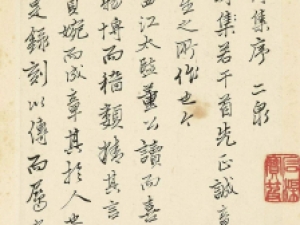 集序 二泉
集若干首先正誠
生之所作也今
江太監董公讀而喜
博而類情其言
婉而成章其於人也
是錄刻以傳而屬